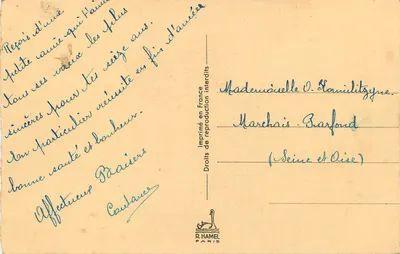 Reçois d'une
petite amie qui t'aime
tous ses vœux les plus
sincères pour tes seize ans.
Ton particulier réussite en fin d'année
bonne santé et bonheur.
Affectueux Baisers
Constance
Imprimé en France
Droits de reproduction interdits
Mademoiselle O.
Marchais-Parfond
(Seine et Oise)
R. HAMEL
PARIS